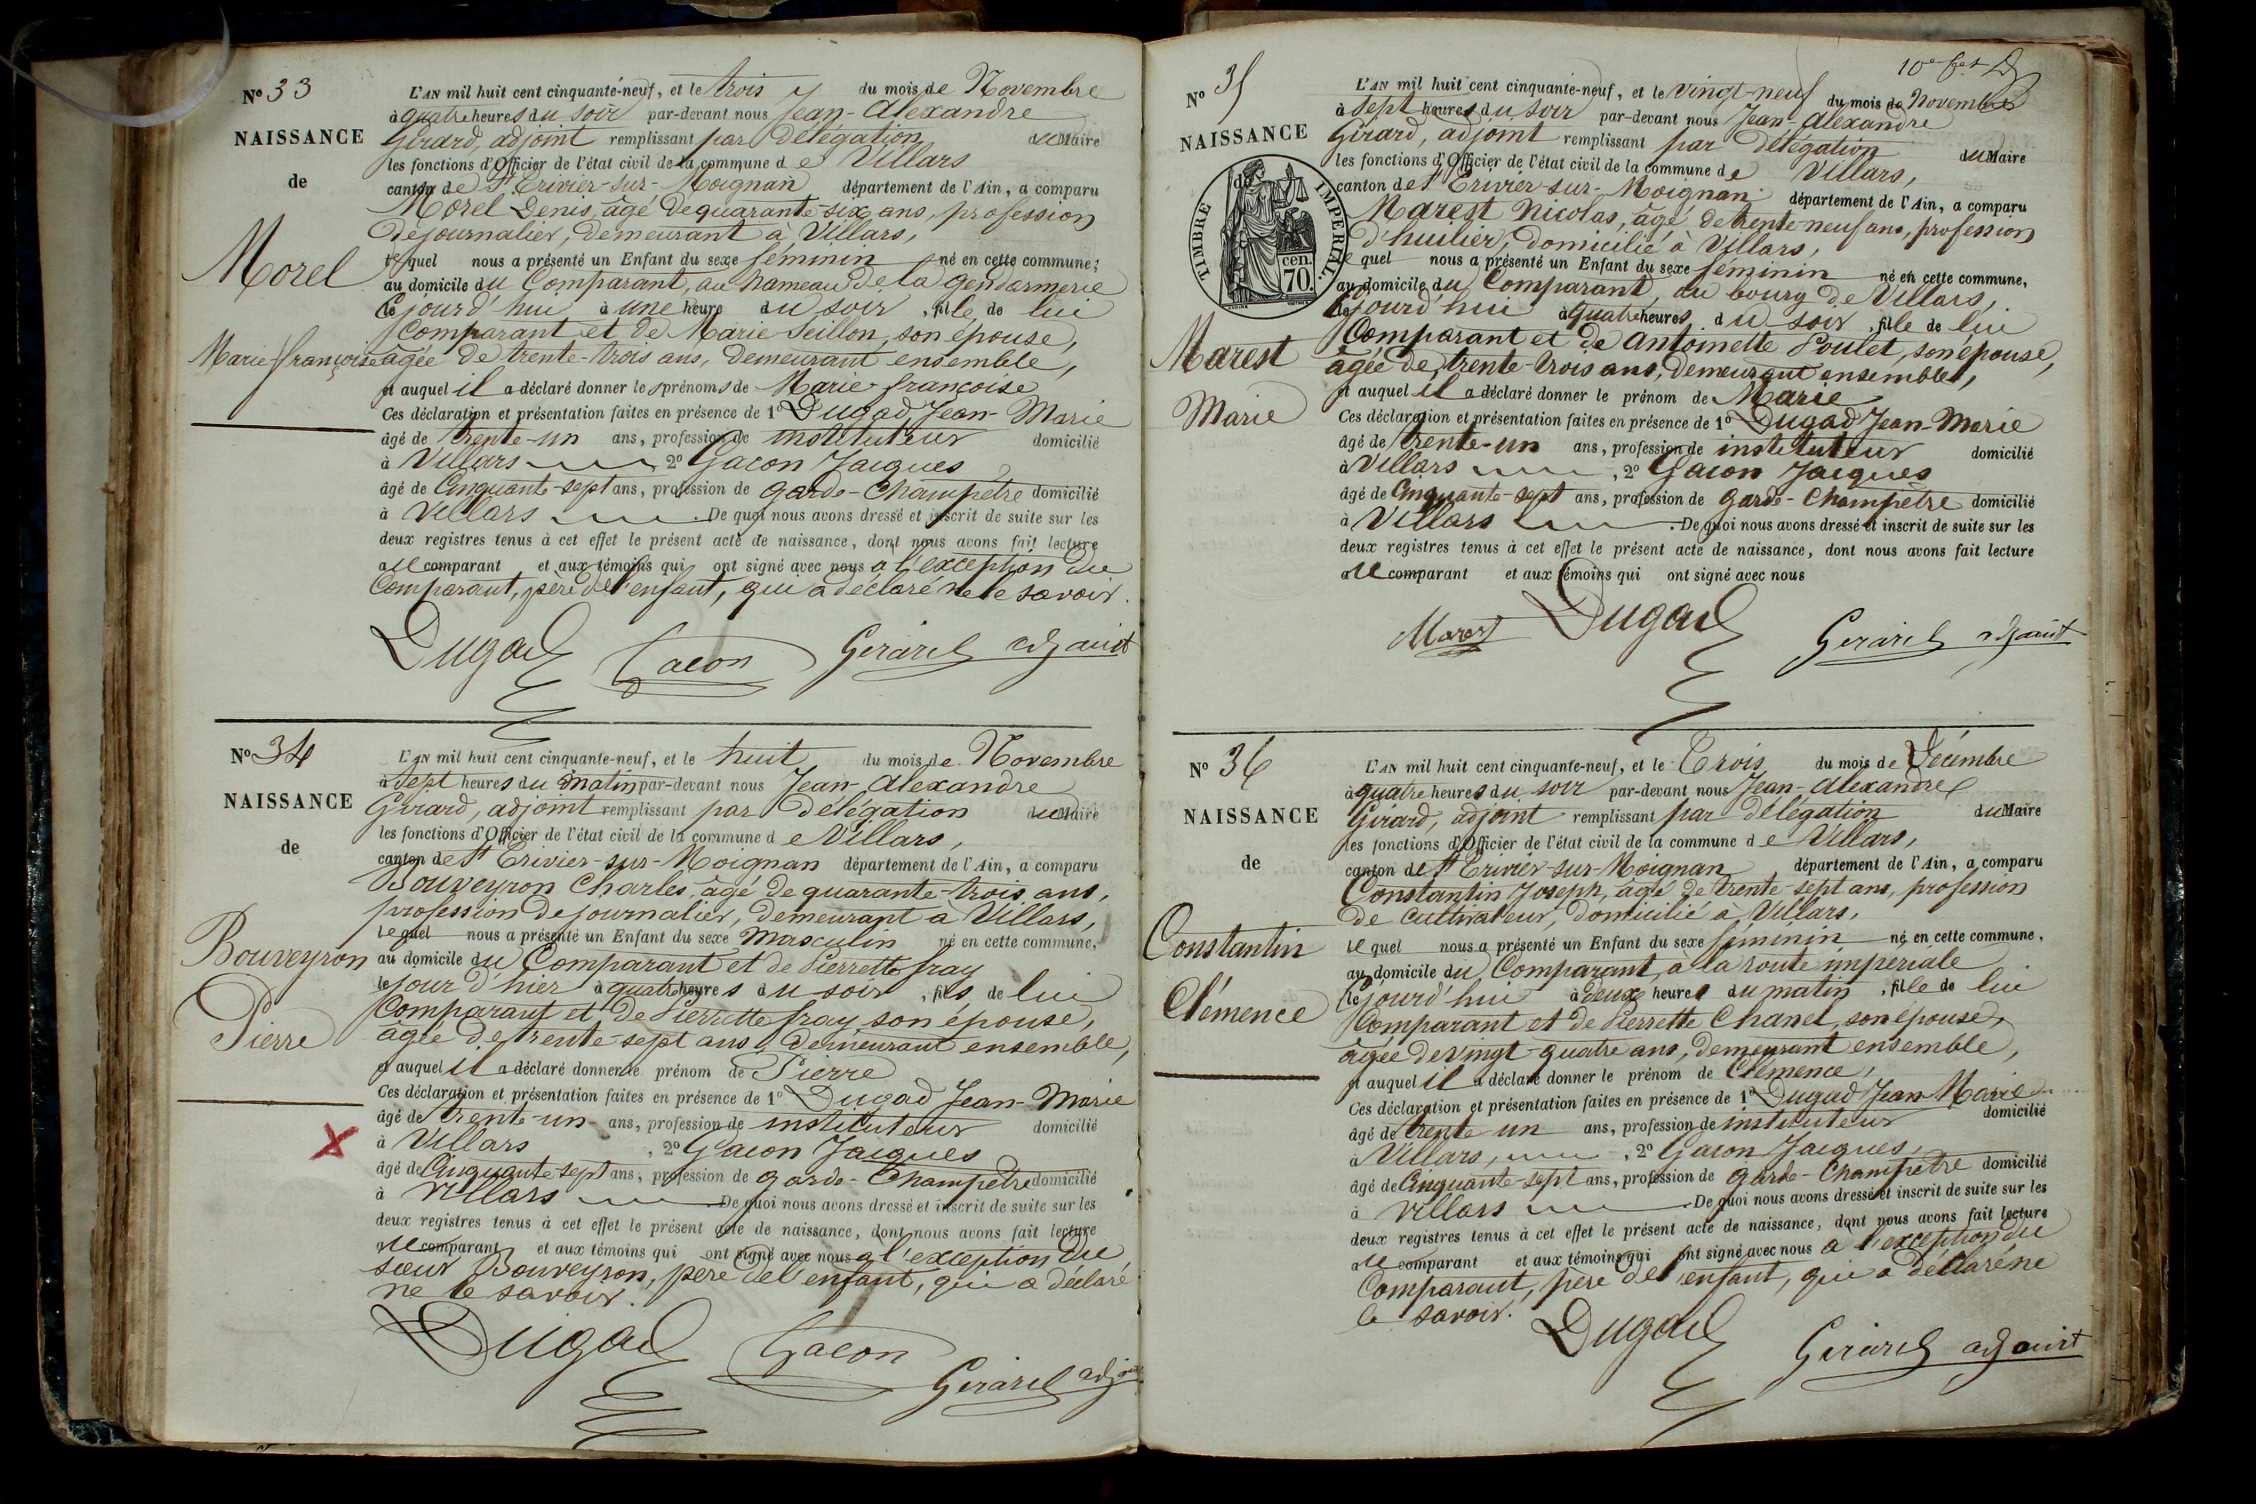 N° 33
NAISSANCE
de
Morel
Marie françoise
L'AN mil huit cent cinquante-neuf, et le trois du mois de Novembre
à quatre heures du soir par-devant nous Jean-Alexandre
Girard, adjoint remplissant par délégation du Maire
les fonctions d'Officier de l'état civil de la commune de Villars
canton de St Trivier-sur-Moignan département de l'Ain, a comparu
Morel Denis, âgé de quarante-six ans, profession
de journalier, demeurant à Villars,
lequel nous a présenté un Enfant du sexe féminin né en cette commune;
au domicile du Comparant, au hameau de la gendarmerie
ce jourd'hui à une heure du soir, fille de lui
Comparant et de Marie Seillon, son épouse,
âgée de trente-trois ans, demeurant ensemble,
et auquel il a déclaré donner les prénoms de Marie françoise
Ces déclaration et présentation faites en présence de 1° Dugad Jean-Marie
âgé de trente-un ans, profession de instituteur domicilié
à Villars, 2° Gacon Jacques
âgé de Cinquante-sept ans, profession de garde-Champêtre domicilié
à Villars. De quoi nous avons dressé et inscrit de suite sur les
deux registres tenus à cet effet le présent acte de naissance, dont nous avons fait lecture
au comparant et aux témoins qui ont signé avec nous a l'exception du
Comparant, père de l'enfant, qui a déclaré ne le savoir.
Dugad Gacon Girard adjoint
N° 34
NAISSANCE
de
Bouveyron
Pierre
L'AN mil huit cent cinquante-neuf, et le huit du mois de Novembre
à sept heures du matin par-devant nous Jean-Alexandre
Girard, adjoint remplissant par délégation du Maire
les fonctions d'Officier de l'état civil de la commune de Villars,
canton de St Trivier-sur-Moignan département de l'Ain, a comparu
Bouveyron Charles, âgé de quarante-trois ans,
profession de journalier, demeurant à Villars,
lequel nous a présenté un Enfant du sexe Masculin né en cette commune,
au domicile du Comparant et de Pierrette fray
le jour d'hier à quatre heures du soir, fils de lui
Comparant et de Pierrette fray, son épouse,
âgée de trente-sept ans, demeurant ensemble,
et auquel il a déclaré donner le prénom de Pierre
Ces déclaration et présentation faites en présence de 1° Dugad Jean-Marie
âgé de trente-un ans, profession de instituteur domicilié
à Villars, 2° Gacon Jacques
âgé de Cinquante-sept ans, profession de garde-Champêtre domicilié
à Villars. De quoi nous avons dressé et inscrit de suite sur les
deux registres tenus à cet effet le présent acte de naissance, dont nous avons fait lecture
au comparant et aux témoins qui ont signé avec nous a l'exception du
sieur Bouveyron, père de l'enfant, qui a déclaré
ne le savoir.
Dugad Gacon Girard adjoint
N° 35
NAISSANCE
de
TIMBRE IMPERIAL
70 cen.
Marest
Marie
L'AN mil huit cent cinquante-neuf, et le vingt-neuf du mois de Novembre
à sept heures du soir par-devant nous Jean-Alexandre
Girard, adjoint remplissant par délégation du Maire
les fonctions d'Officier de l'état civil de la commune de Villars,
canton de St Trivier-sur-Moignan département de l'Ain, a comparu
Marest Nicolas, âgé de trente-neuf ans, profession
d'huilier, domicilié à Villars,
lequel nous a présenté un Enfant du sexe féminin né en cette commune,
au domicile du Comparant, au bourg de Villars,
ce jourd'hui à quatre heures du soir, fille de lui
Comparant et de Antoinette Poulet, son épouse,
âgée de trente-trois ans, demeurant ensemble,
et auquel il a déclaré donner le prénom de Marie
Ces déclaration et présentation faites en présence de 1° Dugad Jean-Marie
âgé de trente-un ans, profession de instituteur domicilié
à Villars, 2° Gacon Jacques
âgé de Cinquante-sept ans, profession de garde-Champêtre domicilié
à Villars. De quoi nous avons dressé et inscrit de suite sur les
deux registres tenus à cet effet le présent acte de naissance, dont nous avons fait lecture
au comparant et aux témoins qui ont signé avec nous
Marest Dugad Girard adjoint
N° 36
NAISSANCE
de
Constantin
Clémence
L'AN mil huit cent cinquante-neuf, et le Trois du mois de Décembre
à quatre heures du soir par-devant nous Jean-Alexandre
Girard, adjoint remplissant par délégation du Maire
les fonctions d'Officier de l'état civil de la commune de Villars,
canton de St Trivier-sur-Moignan département de l'Ain, a comparu
Constantin Joseph, âgé de trente-sept ans, profession
de cultivateur, domicilié à Villars,
lequel nous a présenté un Enfant du sexe féminin né en cette commune,
au domicile du Comparant, à la route impériale
ce jourd'hui à deux heures du matin, fille de lui
Comparant et de Pierrette Chanel, son épouse,
âgée de vingt-quatre ans, demeurant ensemble,
et auquel il a déclaré donner le prénom de Clémence,
Ces déclaration et présentation faites en présence de 1° Dugad Jean-Marie
âgé de trente un ans, profession de instituteur domicilié
à Villars, 2° Gacon Jacques,
âgé de Cinquante-sept ans, profession de garde-Champêtre domicilié
à Villars. De quoi nous avons dressé et inscrit de suite sur les
deux registres tenus à cet effet le présent acte de naissance, dont nous avons fait lecture
au comparant et aux témoins qui ont signé avec nous a l'exception du
Comparant, père de l'enfant, qui a déclaré ne
le savoir.
Dugad Girard adjoint